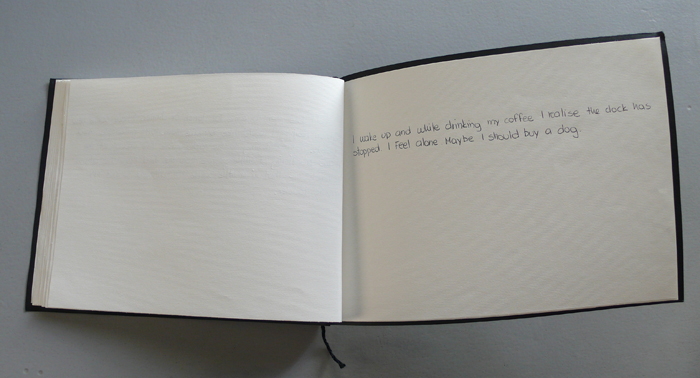 I wake up and while drinking my coffee I realise the clock has
stopped I feel alone Maybe I should buy a dog.